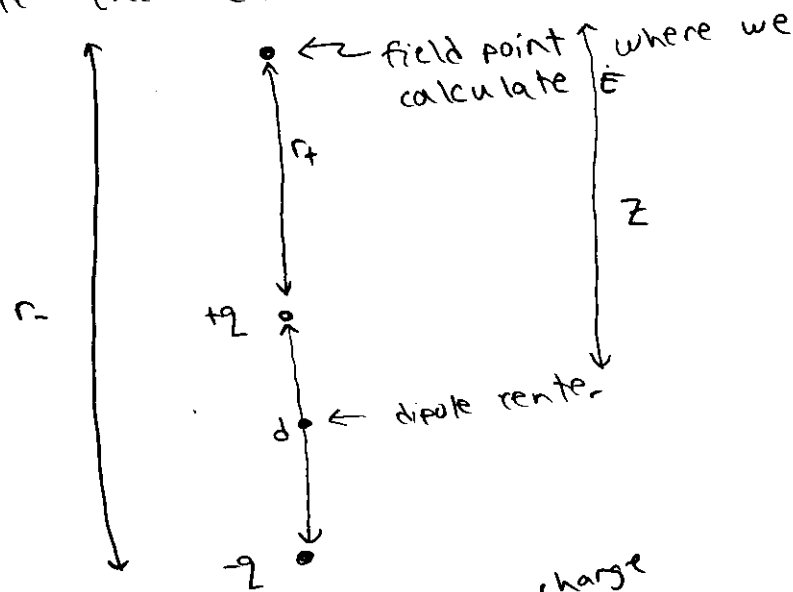 field point where we
calculate E
r+
Z
r-
+q
d
dipole cente.
-q
charge